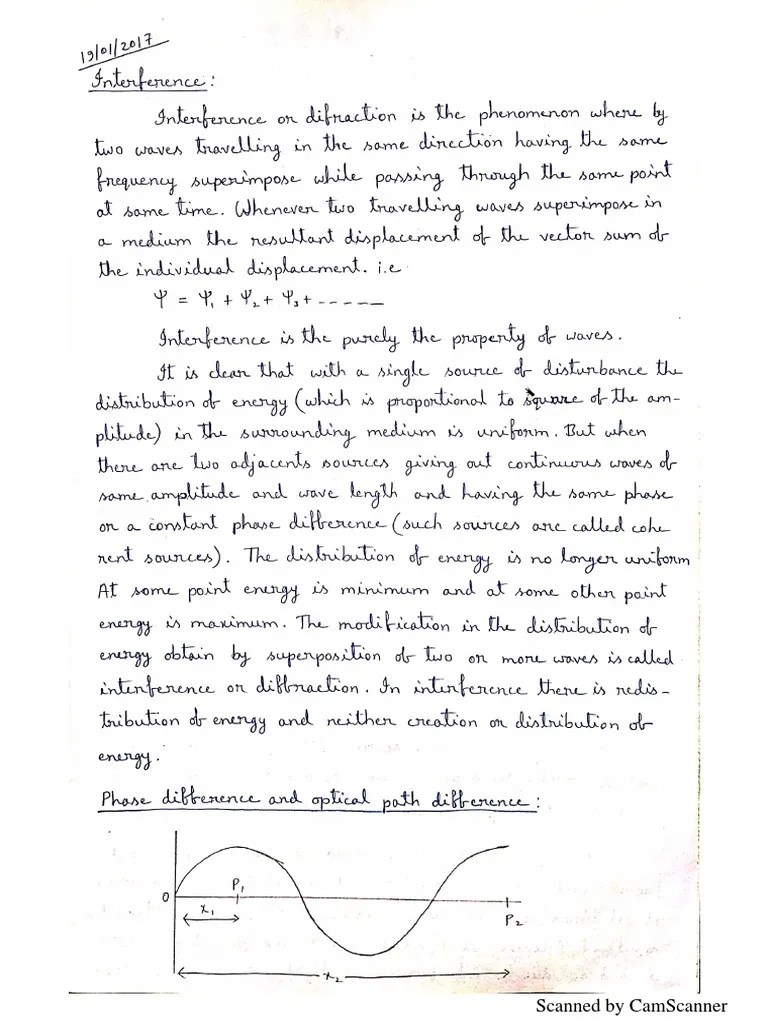 19/01/2017
Interference:
Interference or difraction is the phenomenon where by
two waves travelling in the same direction having the same
frequency superimpose while passing through the same point
at same time. Whenever two travelling waves superimpose in
a medium the resultant displacement of the vector sum of
the individual displacement. i.e
Ψ = Ψ₁ + Ψ₂ + Ψ₃ + -----
Interference is the purely the property of waves.
It is clear that with a single source of disturbance the
distribution of energy (which is proportional to square of the am-
plitude) in the surrounding medium is uniform. But when
there are two adjacents sources giving out continuous waves of
same amplitude and wave length and having the same phase
or a constant phase difference (such sources are called cohe
rent sources). The distribution of energy is no longer uniform
At some point energy is minimum and at some other point
energy is maximum. The modification in the distribution of
energy obtain by superposition of two or more waves is called
interference or diffraction. In interference there is redis-
tribution of energy and neither creation or distribution of
energy.
Phase difference and optical path difference:
P₁
0
x₁
P₂
x₂
Scanned by CamScanner